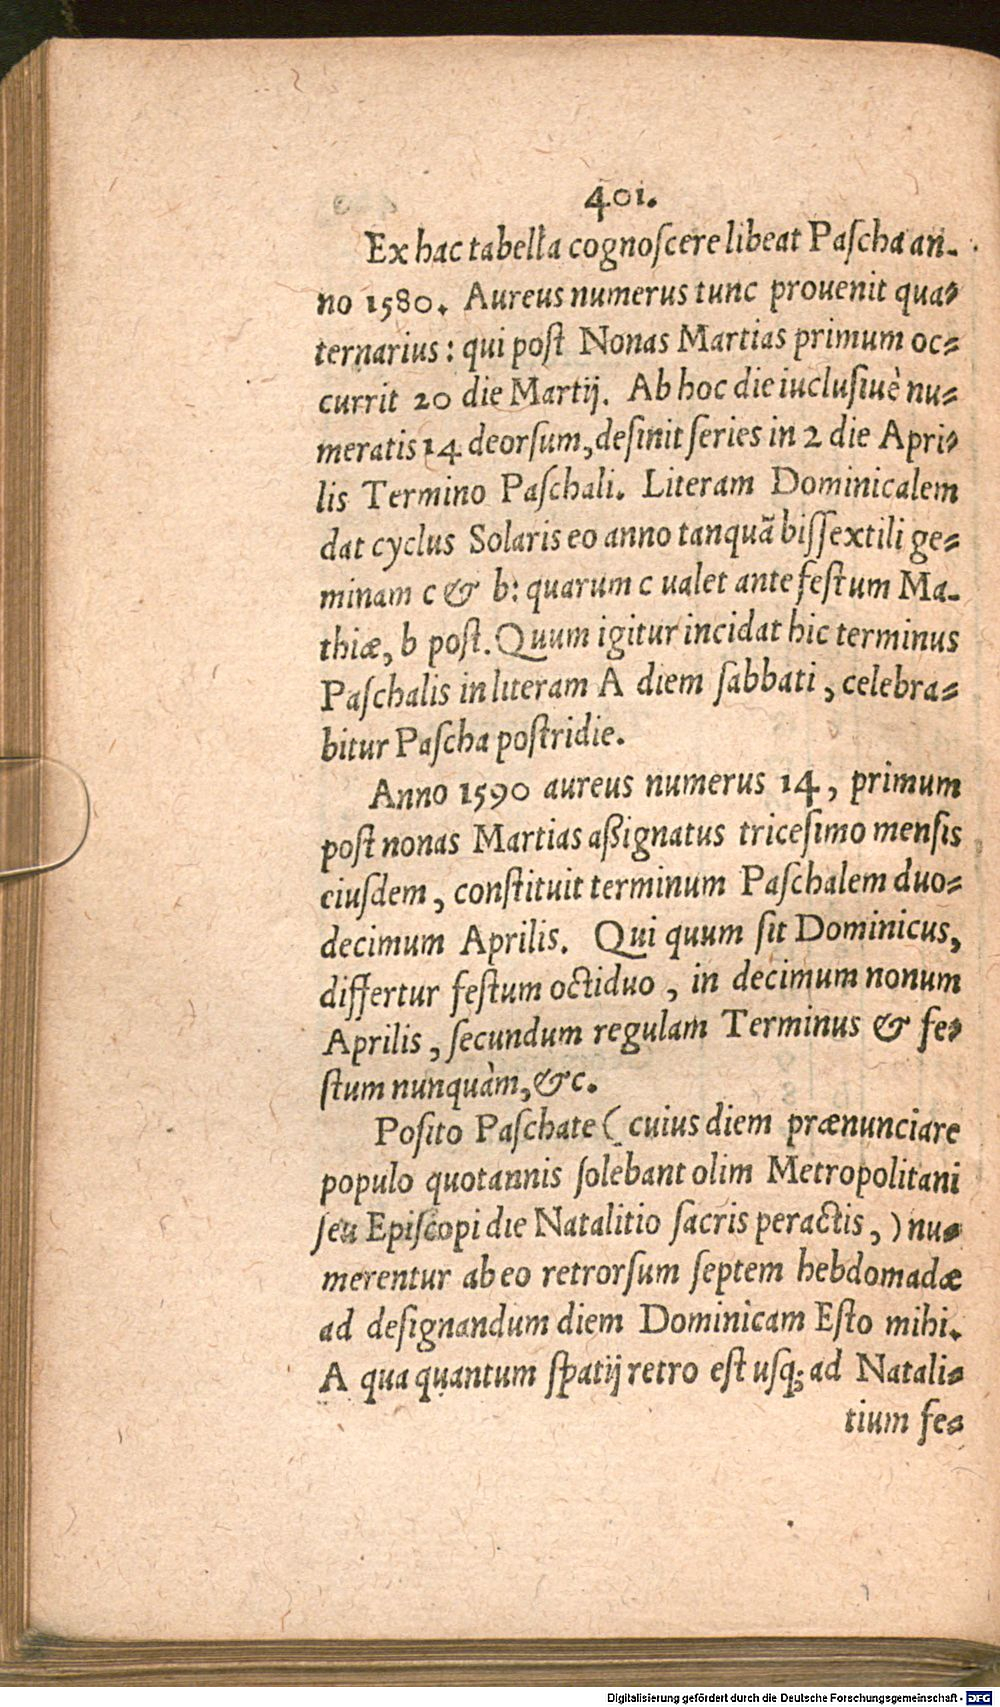 401.
Ex hac tabella cognoſcere libeat Paſcha an-
no 1580. Aureus numerus tunc prouenit qua-
ternarius: qui poſt Nonas Martias primum oc-
currit 20 die Martij. Ab hoc die iucluſiuè nu-
meratis 14 deorſum, deſinit ſeries in 2 die Apri-
lis Termino Paſchali. Literam Dominicalem
dat cyclus Solaris eo anno tanquã biſſextili ge-
minam c & b: quarum c ualet ante feſtum Ma-
thiæ, b poſt. Quum igitur incidat hic terminus
Paſchalis in literam A diem ſabbati, celebra-
bitur Paſcha poſtridie.
Anno 1590 aureus numerus 14, primum
poſt nonas Martias aßignatus triceſimo menſis
eiuſdem, conſtituit terminum Paſchalem duo-
decimum Aprilis. Qui quum ſit Dominicus,
differtur feſtum octiduo, in decimum nonum
Aprilis, ſecundum regulam Terminus & fe-
ſtum nunquàm, &c.
Poſito Paſchate ( cuius diem prænunciare
populo quotannis ſolebant olim Metropolitani
ſeu Epiſcopi die Natalitio ſacris peractis, ) nu-
merentur ab eo retrorſum ſeptem hebdomadæ
ad deſignandum diem Dominicam Eſto mihi.
A qua quantum ſpatij retro eſt uſq; ad Natali-
tium fe-
Digitalisierung gefördert durch die Deutsche Forschungsgemeinschaft - DFG